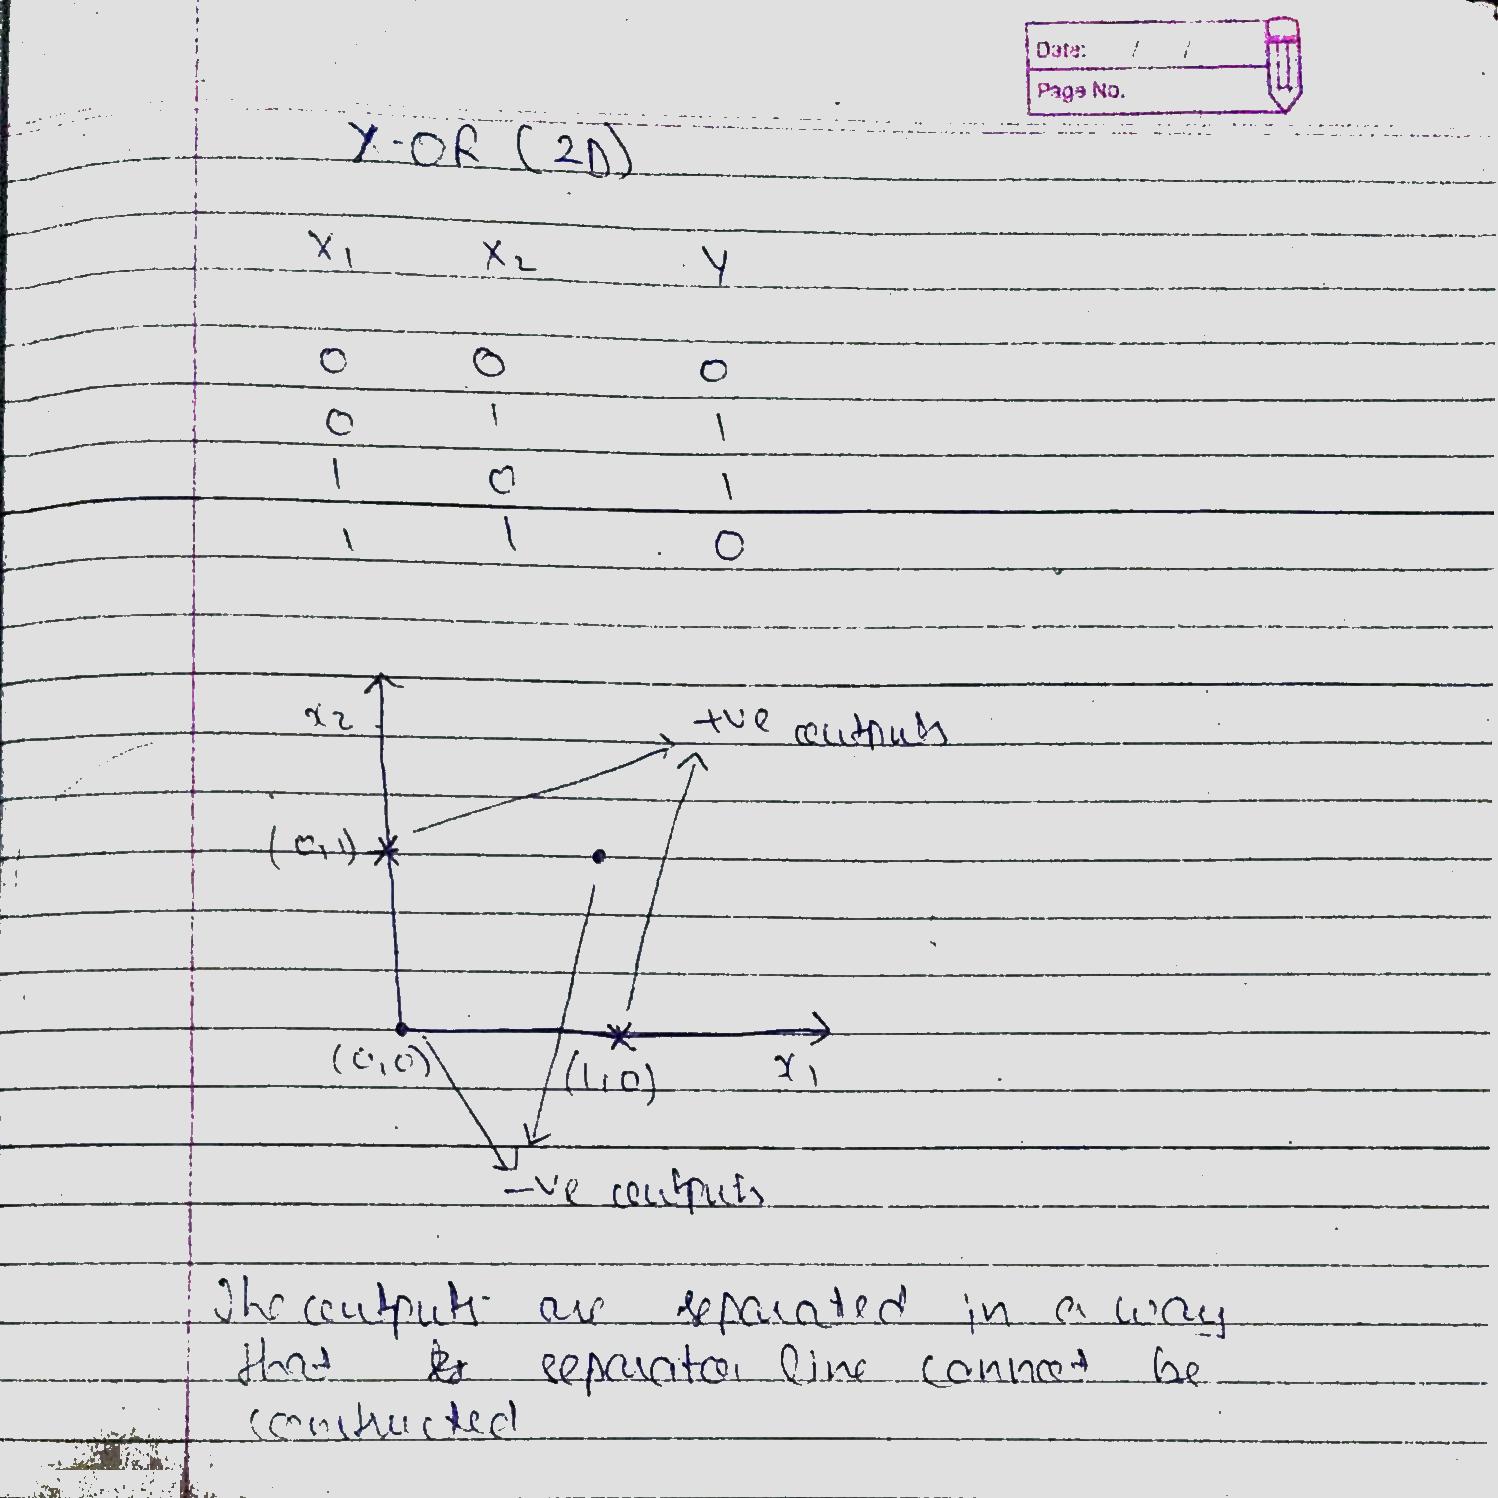 Date: / /
Page No.
X-OR (2D)
X1 X2 Y
0 0 0
0 1 1
1 0 1
1 1 0
x2
+ve outputs
(0,1)
(0,0)
(1,0)
x1
-ve outputs
The outputs are separated in a way
that separator line cannot be
constructed